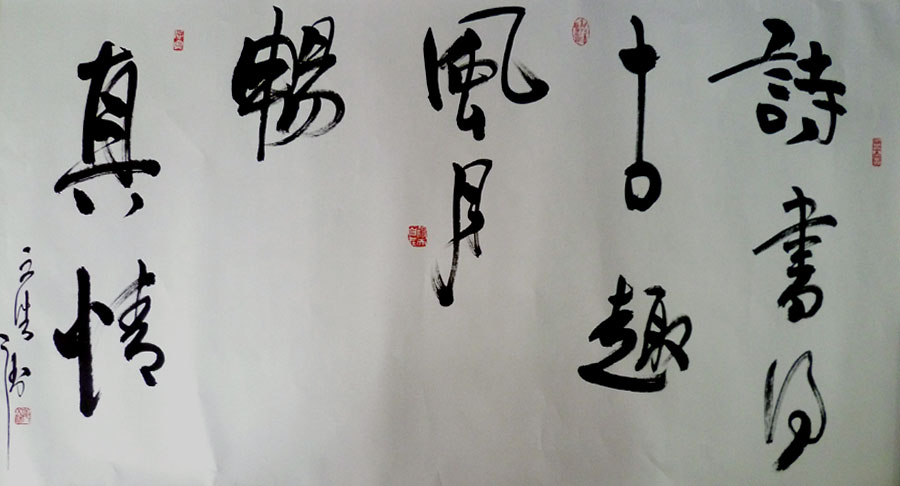 詩書得
古趣
風月
暢
真情